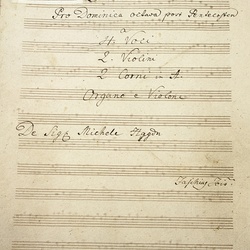 Pro Dominica octava post Pentecosten
a
4 Voci
2 Violini
2 Corni in A.
Organo e Violone
De Sig: Michele Haydn